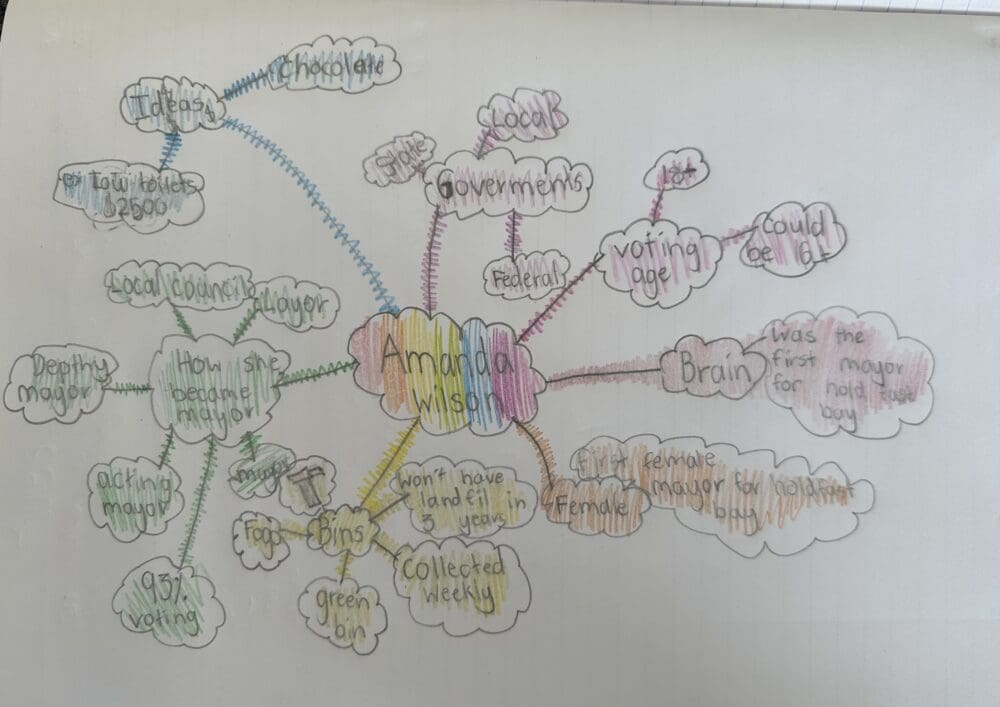 Chocolate
Ideas
Tow toilets
$2500
Local
State
Goverments
Federal
18+
voting
age
could
be 16
Local council
Layor
How she
became
mayor
Depthy
mayor
acting
mayor
93%
voting
Amanda
wilson
Brain
was the
first mayor
for hold fast
bay
Female
first female
mayor for holdfast
bay
Bins
won't have
landfil in
3 years
Collected
weekly
green
bin
Fogo